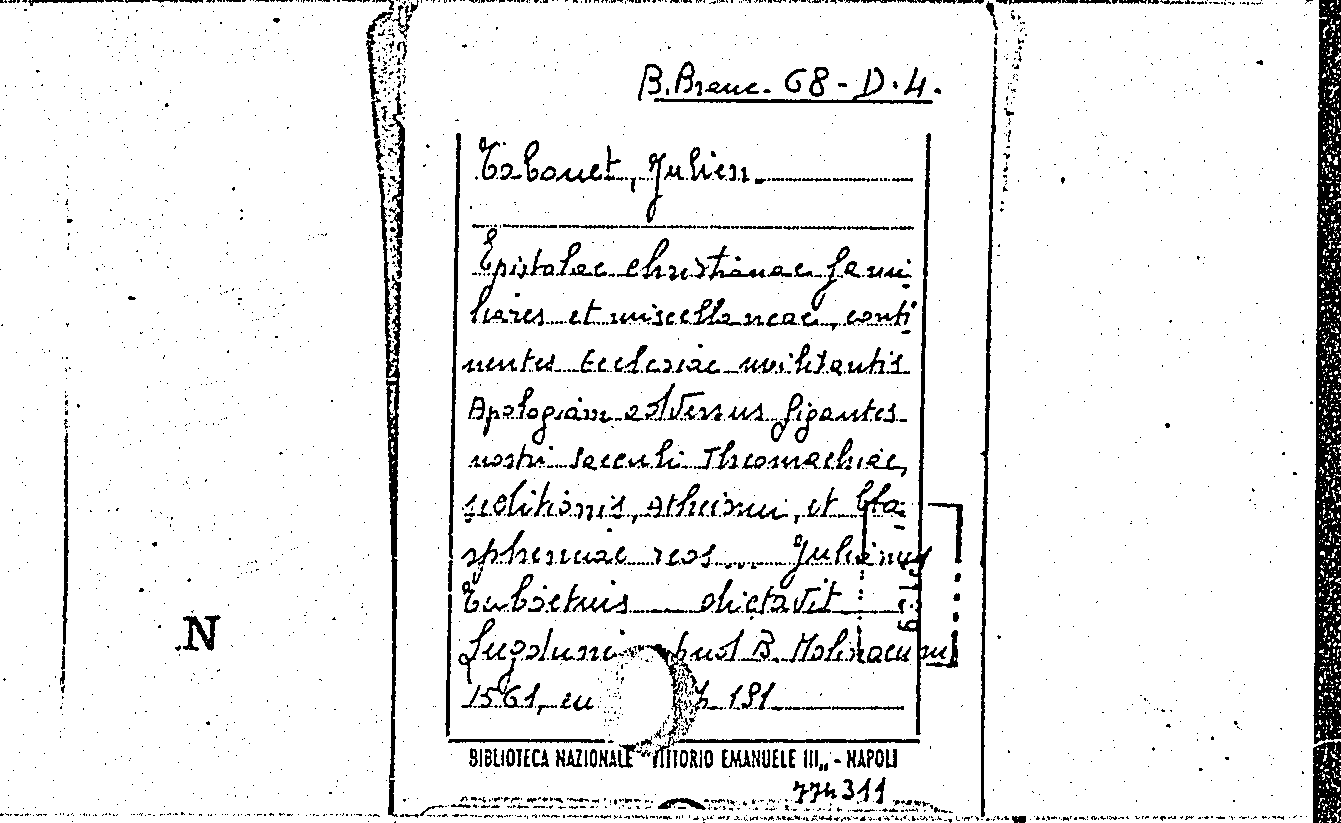 B. Branc. 68 - D. 4.
Tabouet, Julien.
Epistolae christianae fami
liares et miscellaneae, conti
nentes Ecclesiae militantis
Apologiam adversus gigantes
nostri saeculi Theomachiae,
seditionis, Atheismi, et bla-
sphemiae reos... Julianus
dictavit
Lugduni B. Molinaeum
1561, 191
N
BIBLIOTECA NAZIONALE "VITTORIO EMANUELE III„ - NAPOLI
774311